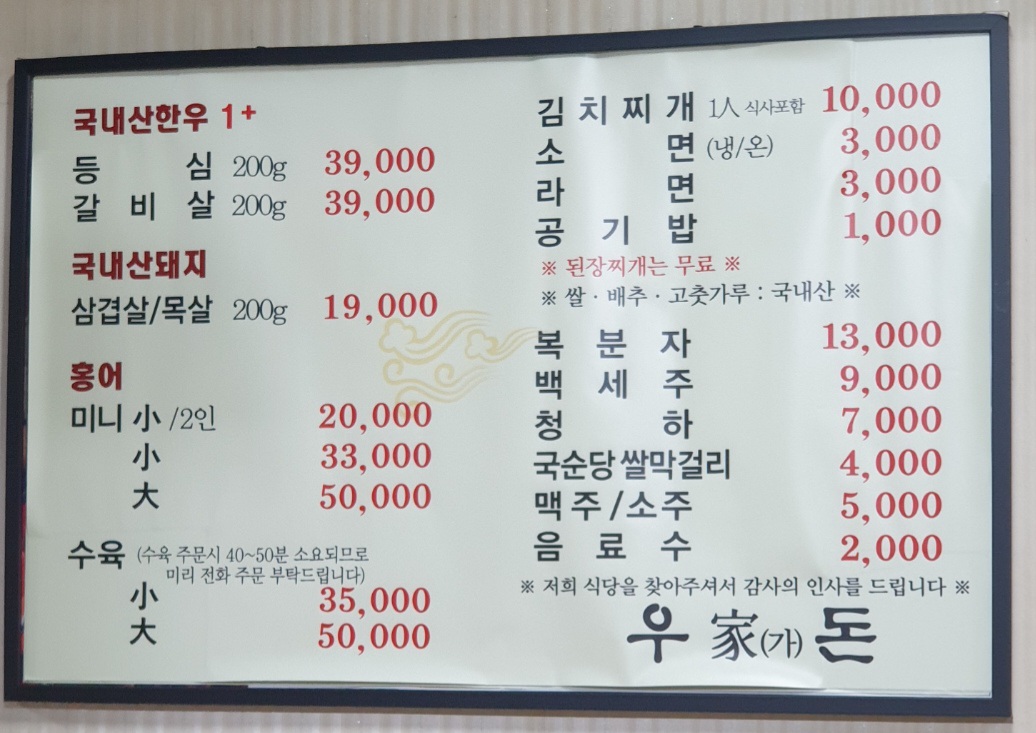 국내산한우 1+
등심 200g 39,000
갈비살 200g 39,000
국내산돼지
삼겹살/목살 200g 19,000
홍어
미니 小 /2인 20,000
小 33,000
大 50,000
수육 (수육 주문시 40~50분 소요되므로
미리 전화 주문 부탁드립니다)
小 35,000
大 50,000
김치찌개 1人 식사포함 10,000
소면 (냉/온) 3,000
라면 3,000
공기밥 1,000
※ 된장찌개는 무료 ※
※ 쌀 · 배추 · 고춧가루 : 국내산 ※
복분자 13,000
백세주 9,000
청하 7,000
국순당 쌀막걸리 4,000
맥주/소주 5,000
음료수 2,000
※ 저희 식당을 찾아주셔서 감사의 인사를 드립니다 ※
우家(가)돈